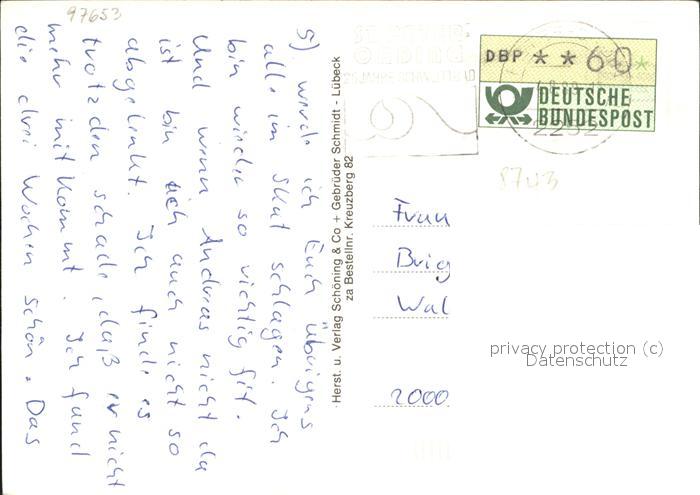 97653
5) werde ich Euch übrigens
alle im Skat schlagen. Ich
bin wieder so richtig fit.
Und wenn Andreas nicht da
ist bin ich auch nicht so
abgelenkt. Ich finde es
trotzdem schade, daß er nicht
mehr mitkommt. Ich fand
die drei Wochen schön. Das
Herst. u. Verlag Schöning & Co + Gebrüder Schmidt - Lübeck
za Bestellnr. Kreuzberg 82
DBP ** 60 *
DEUTSCHE
BUNDESPOST
2252
Frau
Brig
Wal
2000
privacy protection (c)
Datenschutz